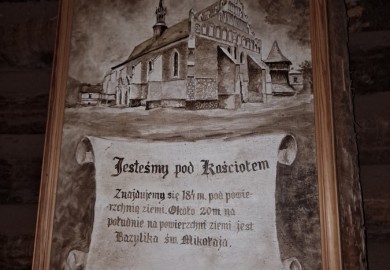 Jesteśmy pod Kościołem
Znajdujemy się 184 m. pod powie-
rzchnią ziemi. Około 20 m. na
południe na powierzchni ziemi jest
Bazylika św. Mikołaja.